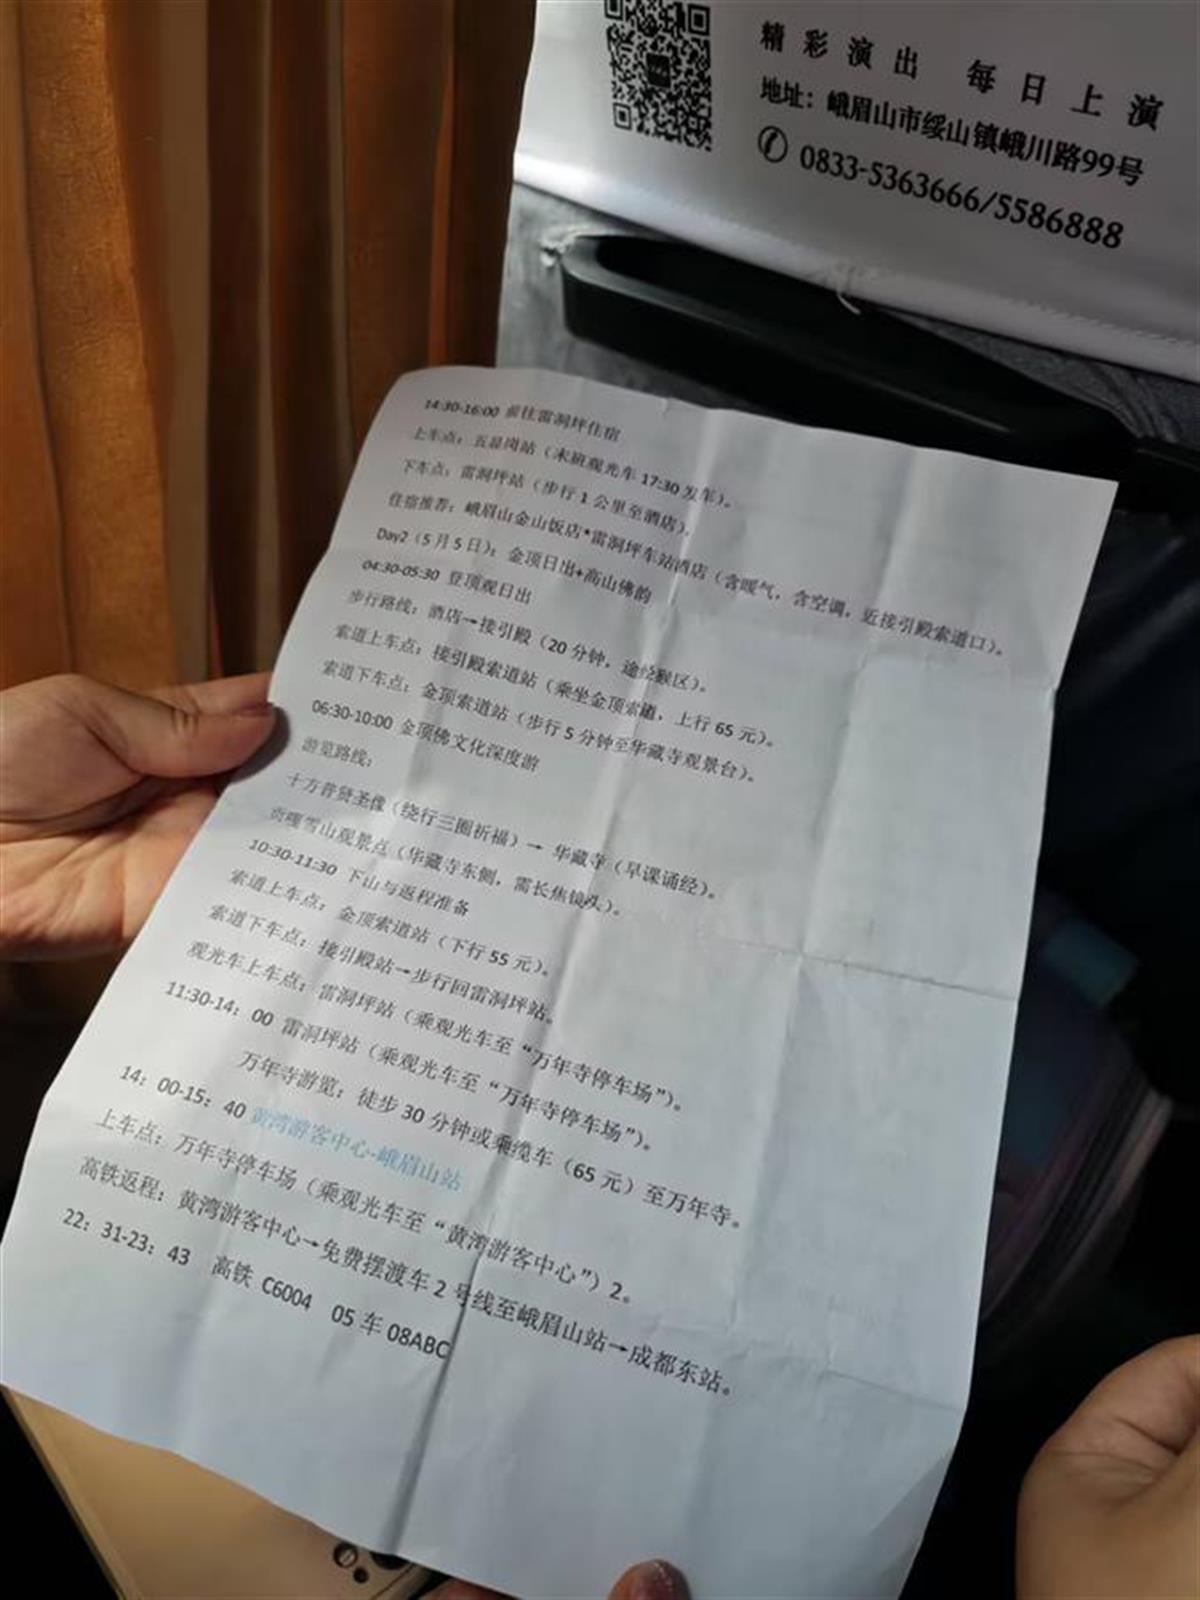 精彩演出 每日上演
地址：峨眉山市绥山镇峨川路99号
0833-5363666/5586888
14:30-16:00 前往雷洞坪住宿
上车点：五显岗站（末班观光车 17:30 发车）。
下车点：雷洞坪站（步行 1 公里至酒店）。
住宿推荐：峨眉山金山饭店*雷洞坪车站酒店（含暖气，含空调，近接引殿索道口）。
Day2（5 月 5 日）：金顶日出+高山佛韵
04:30-05:30 登顶观日出
步行路线：酒店→接引殿（20 分钟，途经猴区）。
索道上车点：接引殿索道站（乘坐金顶索道，上行 65 元）。
索道下车点：金顶索道站（步行 5 分钟至华藏寺观景台）。
06:30-10:00 金顶佛文化深度游
游览路线：
十方普贤圣像（绕行三圈祈福）→ 华藏寺（早课诵经）。
贡嘎雪山观景点（华藏寺东侧，需长焦镜头）。
10:30-11:30 下山与返程准备
索道上车点：金顶索道站（下行 55 元）。
索道下车点：接引殿站→步行回雷洞坪站。
观光车上车点：雷洞坪站（乘观光车至“万年寺停车场”）。
11:30-14：00 雷洞坪站（乘观光车至“万年寺停车场”）。
万年寺游览：徒步 30 分钟或乘缆车（65 元）至万年寺。
14：00-15：40 黄湾游客中心-峨眉山站
上车点：万年寺停车场（乘观光车至“黄湾游客中心”）2。
高铁返程：黄湾游客中心→免费摆渡车 2 号线至峨眉山站→成都东站。
22：31-23：43 高铁 C6004 05 车 08ABC